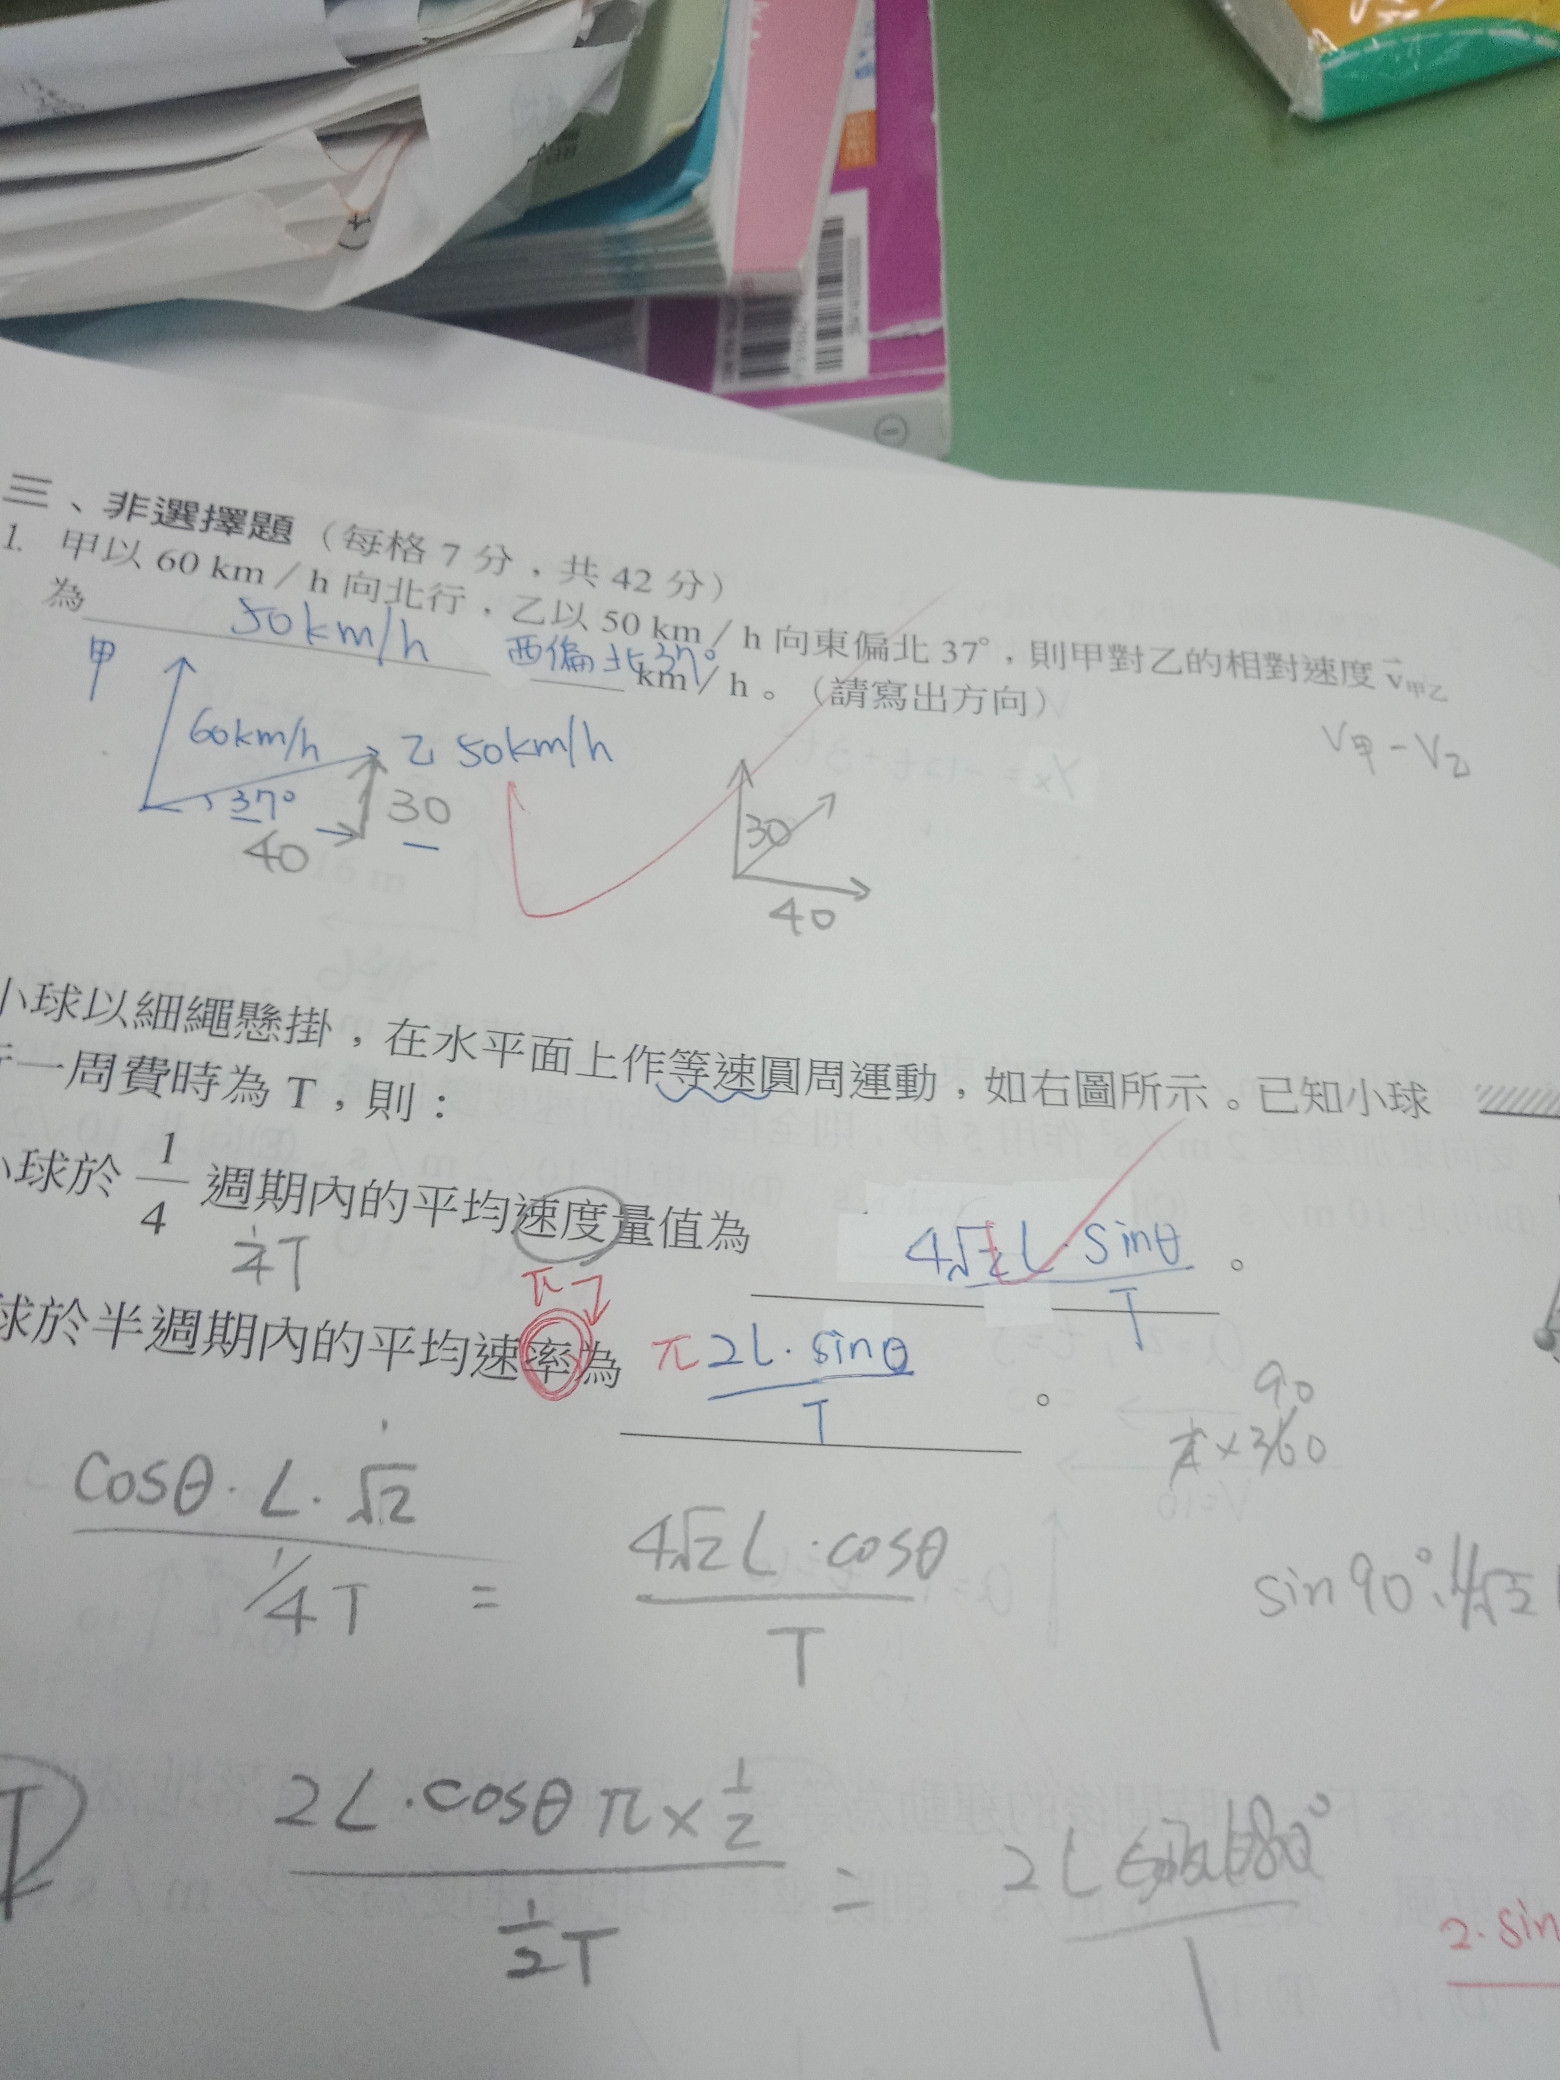 三、非選擇題（每格 7 分，共 42 分）
1. 甲以 60 km／h 向北行，乙以 50 km／h 向東偏北 37°，則甲對乙的相對速度 v甲乙
為 50km/h 西偏北37° km／h。（請寫出方向）
甲
60km/h
乙 50km/h
37°
30
40
30
40
V甲-V乙
小球以細繩懸掛，在水平面上作等速圓周運動，如右圖所示。已知小球
一周費時為 T，則：
小球於 1/4 週期內的平均速度量值為 4√2 L·Sinθ / T。
1/4T
π
球於半週期內的平均速率為 π 2L·sinθ / T。
90
1/4×360
cosθ·L·√2 / 1/4T = 4√2 L·cosθ / T
sin90°·4√2
2L·cosθ π×1/2 / 1/2T =
2·sin